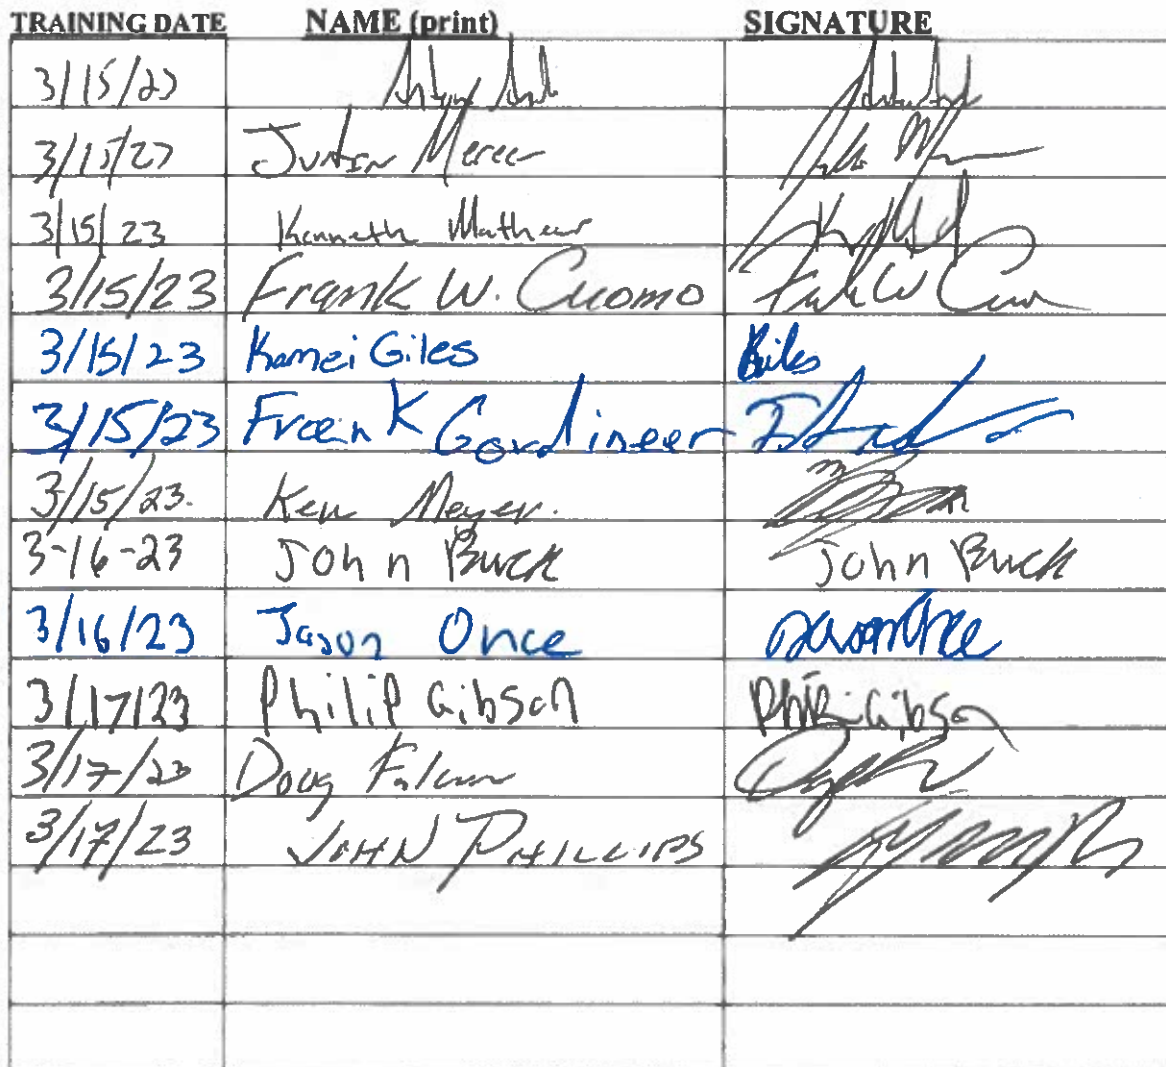 TRAINING DATE NAME (print) SIGNATURE
3/15/23
3/15/23 Justin Mercer
3/15/23 Kenneth Mathews
3/15/23 Frank W. Cuomo Frank W Cuomo
3/15/23 Kamei Giles Giles
3/15/23 Frank Gordineer
3/15/23. Ken Meyer.
3-16-23 John Buck John Buck
3/16/23 Jason Once Jason Once
3/17/23 Philip Gibson Philip Gibson
3/17/23 Doug
3/17/23 JOHN PHILLIPS